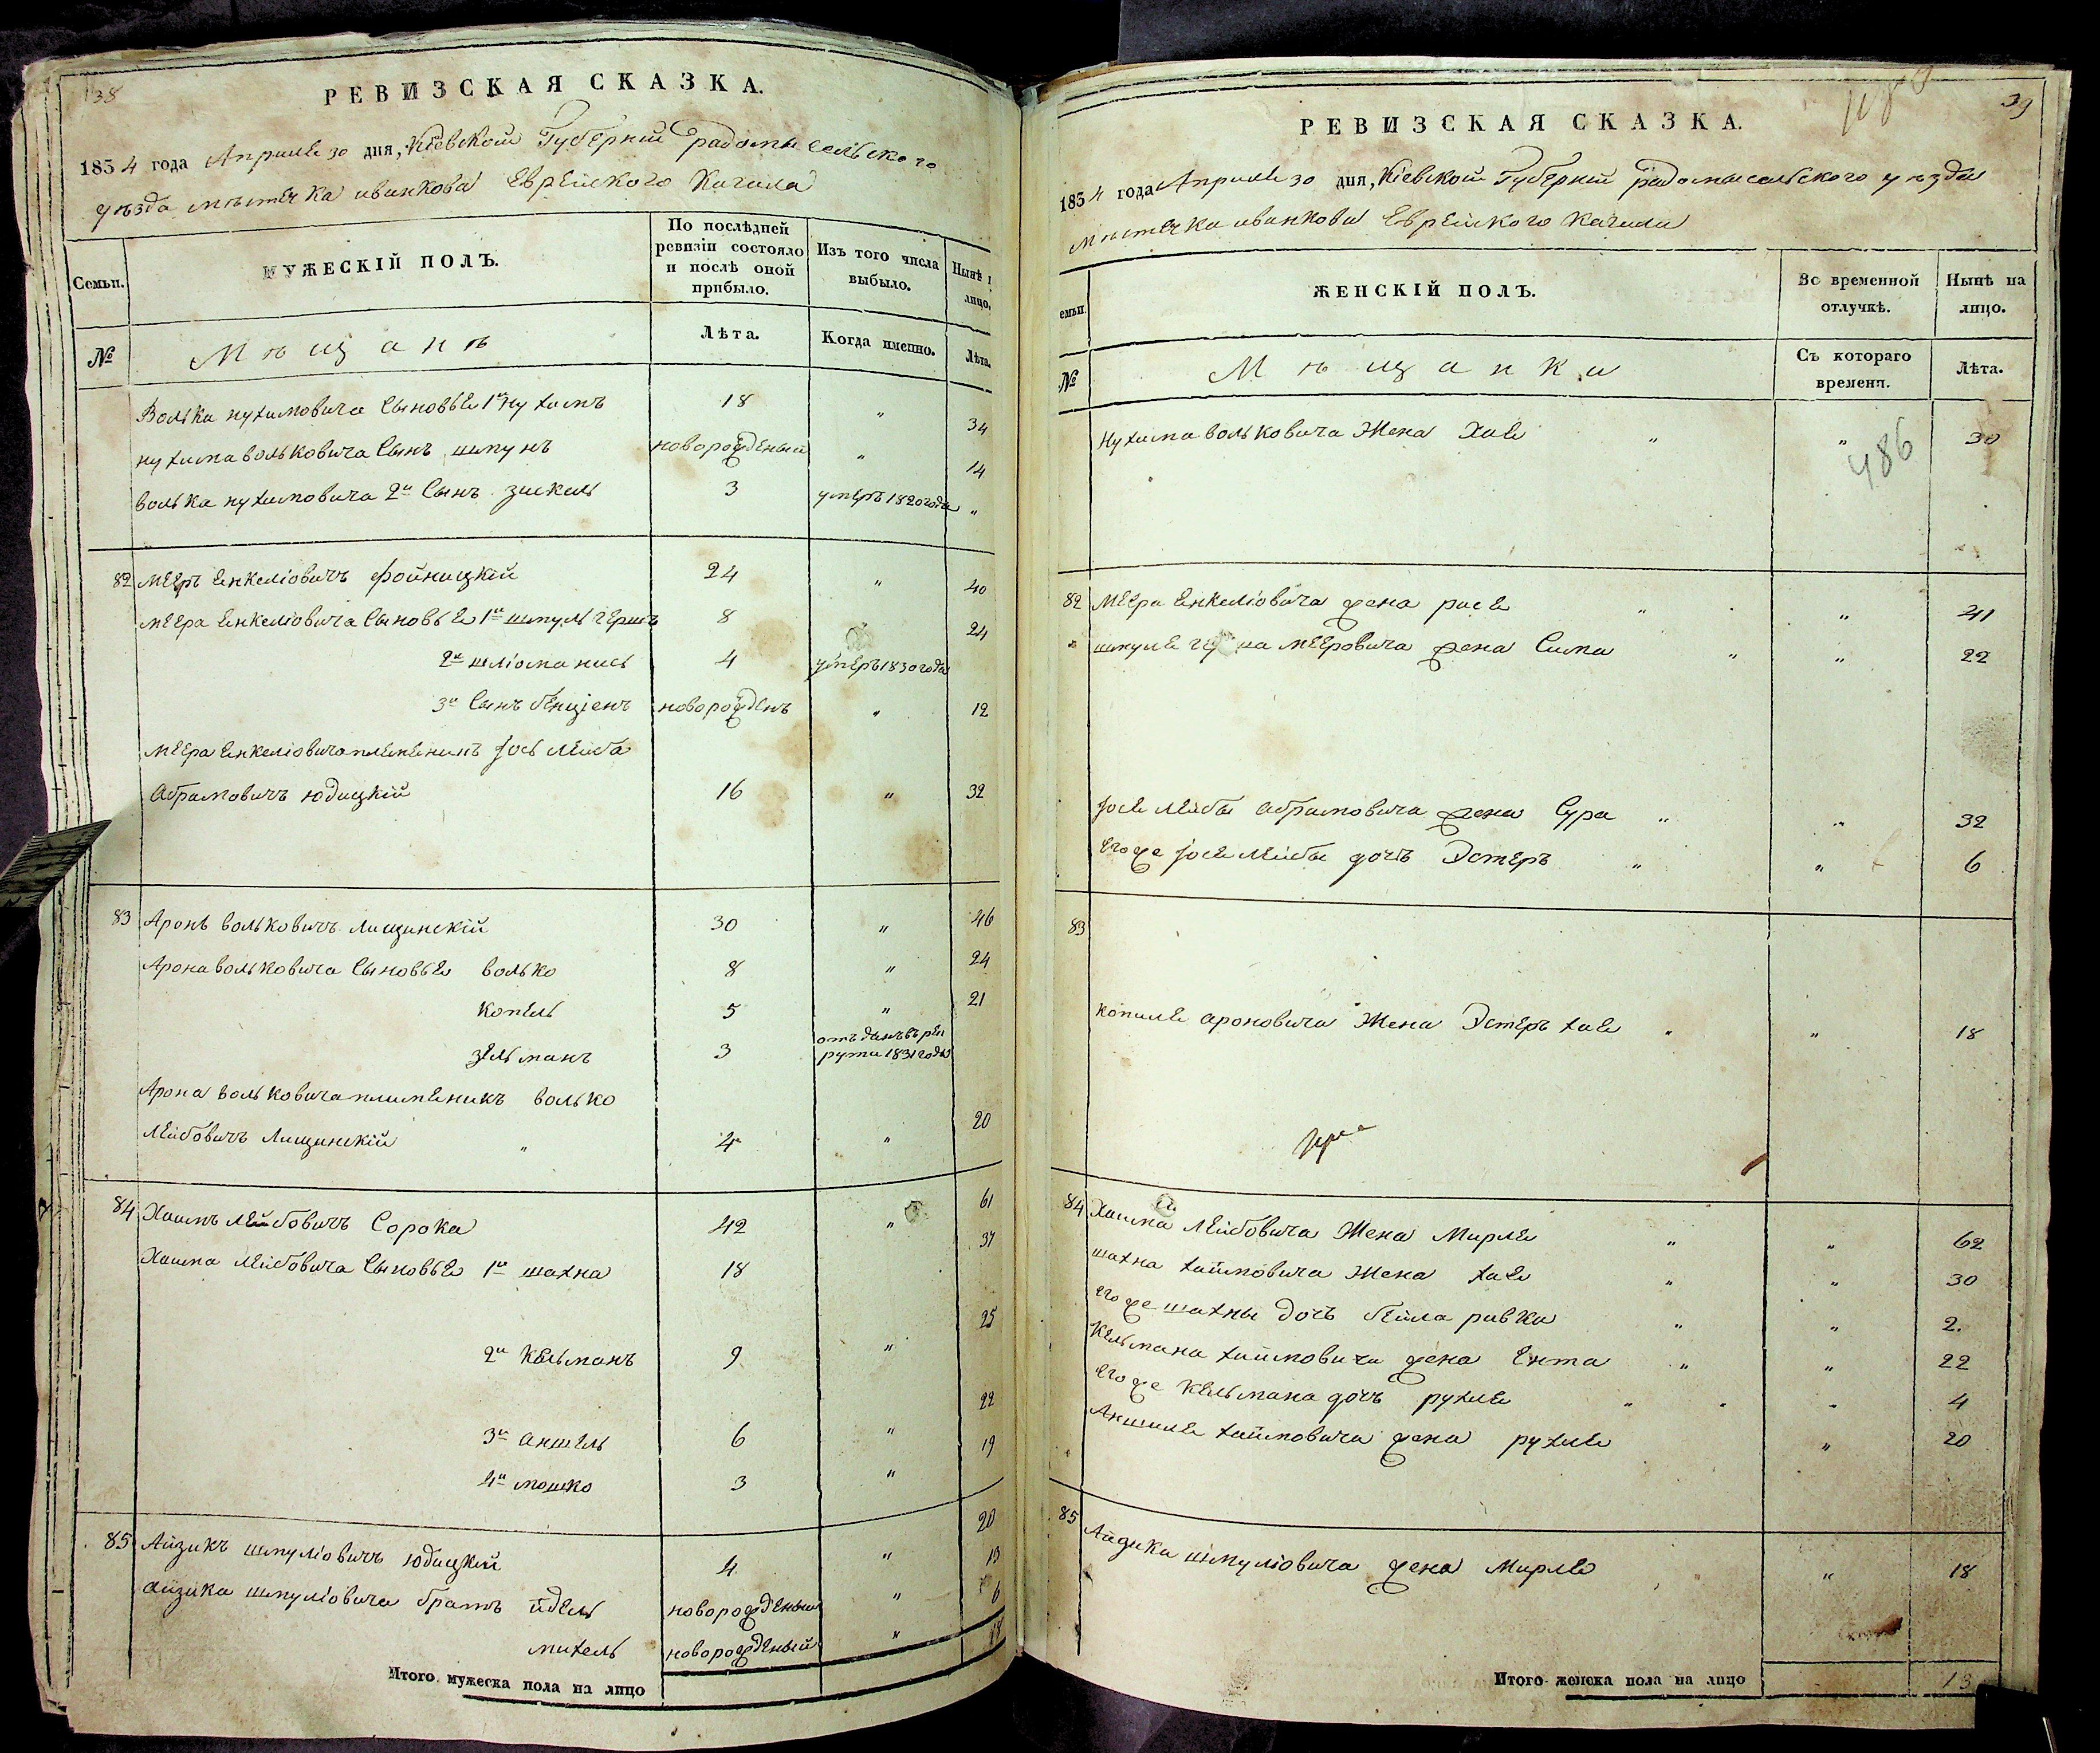 38
РЕВИЗСКАЯ СКАЗКА.
1834 года Апреля 30 дня, Кіевской Губерніи радомысельского
уѣзда мѣстечка иванкова Еврейского Кагала
Семьи.
МУЖЕСКІЙ ПОЛЪ.
По послѣдней ревизіи состояло и послѣ оной прибыло.
Изъ того числа выбыло.
Нынѣ на лицо.
№
Мѣщанѣ
Лѣта.
Когда именно.
Лѣта.
Волька нухимовича Сыновье 1й Нухимъ 18 " 34
нухима вольковича Сынъ шмунъ новорожденый " 14
волька нухимовича 2й Сынъ зискель 3 умеръ 1820 года "
82 Мееръ Енкеліовичъ фойницкій 24 " 40
меера Енкеліовича Сыновье 1й шмуль гершъ 8 24
2й шліома 4 умеръ 1830 года
3й Сынъ бенціенъ новорожденъ " 12
меера Енкеліовича племеникъ Іось Лейба
Абрамовичъ юдицкій 16 " 32
83 Аронъ вольковичъ Лищинскій 30 " 46
Арона вольковича Сыновье волько 8 " 24
копель 5 " 21
зельманъ 3 отъданъ въ рек
руты 1831 года
Арона вольковича племеникъ волько
Лейбовичъ Лищинскій " 4 " 20
84 Хаимъ Лейбовичъ Сорока 42 " 61
Хаима Лейбовича Сыновье 1й шахна 18 37
2й Кельманъ 9 " 25
3й аншель 6 " 22
4й мошко 3 " 19
85 Айзикъ шмуліовичъ юдицкій 4 " 20
айзика шмуліовича братъ йдель новорожденый " 13
михель новорожденый " 6
Итого мужеска пола на лицо 18
39
РЕВИЗСКАЯ СКАЗКА.
1834 года Апреля 30 дня, Кіевской Губерніи радомысельского уѣзда
мѣстечка иванкова Еврейского Кагала
Семьи.
ЖЕНСКІЙ ПОЛЪ.
Во временной отлучкѣ.
Нынѣ на лицо.
№
Мѣщанки
Съ котораго времени.
Лѣта.
Нухима вольковича Жена Хае " " 30
486
82 Меера Енкеліовича жена расе " " 41
шмуле мееровича жена Сима " " 22
Іося Лейбы абрамовича жена Сура " " 32
Егоже Іося Лейбы дочь Эстеръ " " 6
83
копиле ароновича Жена Эстеръ хае " " 18
84 Хаима Лейбовича Жена Мирле " " 62
шахна хаимовича Жена хае " " 30
егоже шахны дочь бейла ривка " " 2.
Кельмана хаимовича жена Ента " " 22
егоже Кельмана дочь рухле " " 4
Аншиле хаимовича жена рухле " 20
85 Айзика шмуліовича жена Мирле " 18
Итого женска пола на лицо 13